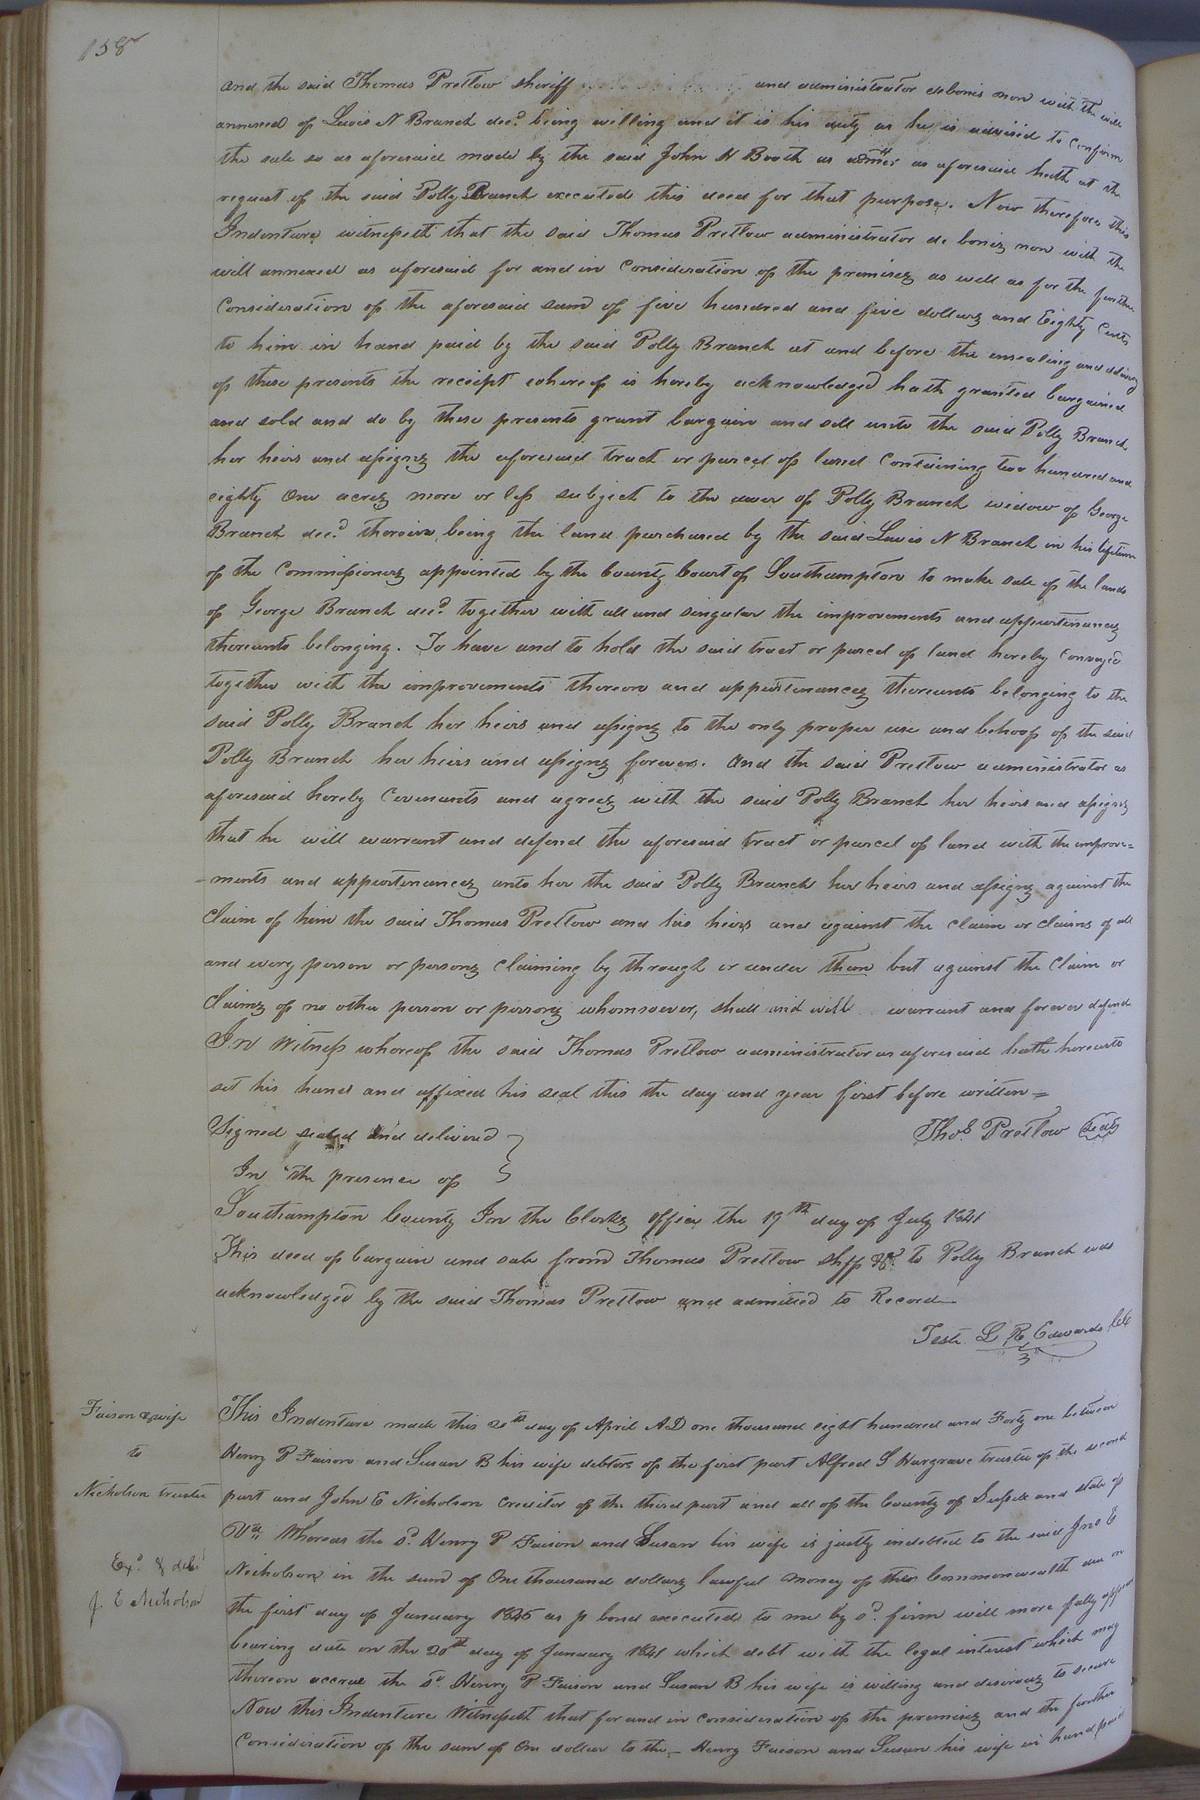 158
and the said Thomas Pretlow sheriff and administrator debonis non with the will
annexed of Lewis N Branch decd. being willing and it is his duty as he is advised to confirm
the sale so as aforesaid made by the said John N Booth as admr as aforesaid hath at the
request of the said Polly Branch executed this deed for that purpose. Now therefore this
Indenture witnesseth that the said Thomas Pretlow administrator de bonis non with the
will annexed as aforesaid for and in Consideration of the premises as well as for the further
Consideration of the aforesaid sum of five hundred and five dollars and Eighty Cents
to him in hand paid by the said Polly Branch at and before the ensealing and delivery
of these presents the receipt whereof is hereby acknowledged hath granted bargained
and sold and do by these presents grant bargain and sell unto the said Polly Branch
her heirs and assigns the aforesaid tract or parcel of land Containing two hundred and
eighty One acres more or less subject to the dower of Polly Branch widow of George
Branch decd. therein, being the land purchased by the said Lewis N Branch in his lifetime
of the Commissioners appointed by the County Court of Southampton to make sale of the lands
of George Branch decd. together with all and singular the improvements and appurtenances
thereunto belonging. To have and to hold the said tract or parcel of land hereby Conveyed
together with the improvements thereon and appurtenances thereunto belonging to the
said Polly Branch her heirs and assigns to the only proper use and behoof of the said
Polly Branch her heirs and assigns forever. And the said Pretlow administrator as
aforesaid hereby Covenants and agrees with the said Polly Branch her heirs and assigns
that he will warrant and defend the aforesaid tract or parcel of land with the improve=
-ments and appurtenances unto her the said Polly Branch her heirs and assigns against the
Claim of him the said Thomas Pretlow and his heirs and against the claim or claims of all
and every person or persons Claiming by through or under them but against the Claim or
Claims of no other person or persons whomsoever, shall and will warrant and forever defend
In Witness whereof the said Thomas Pretlow administrator as aforesaid hath hereunto
set his hand and affixed his seal this the day and year first before written =
Signed sealed and delivered } Thos. Pretlow Seal
In the presence of }
Southampton County In the Clerks Office the 19th day of July 1841
This deed of bargain and sale from Thomas Pretlow shff &c. to Polly Branch was
acknowledged by the said Thomas Pretlow and admitted to Record
Teste L. R. Edwards Clk
Faison & wife
to
Nicholson trustee
Exd. & deld
J. E Nicholson
This Indenture made this 20th day of April AD one thousand eight hundred and Forty one between
Henry P Faison and Susan B his wife debtors of the first part Alfred S Hargrave trustee of the second
part and John E Nicholson Creditor of the third part and all of the County of and state of
Va. Whereas the sd. Henry P Faison and Susan his wife is justly indebted to the said Jno E
Nicholson in the sum of One thousand dollars lawful money of this Commonwealth due on
the first day of January as p bond executed to me by sd. firm will more fully appear
bearing date on the 20th day of January 1841 which debt with the legal interest which may
thereon accrue the sd Henry P Faison and Susan B his wife is willing and desirous to secure
Now this Indenture Witnesseth that for and in consideration of the premises and the further
Consideration of the sum of One dollar to the - Henry Faison and Susan his wife in hand paid